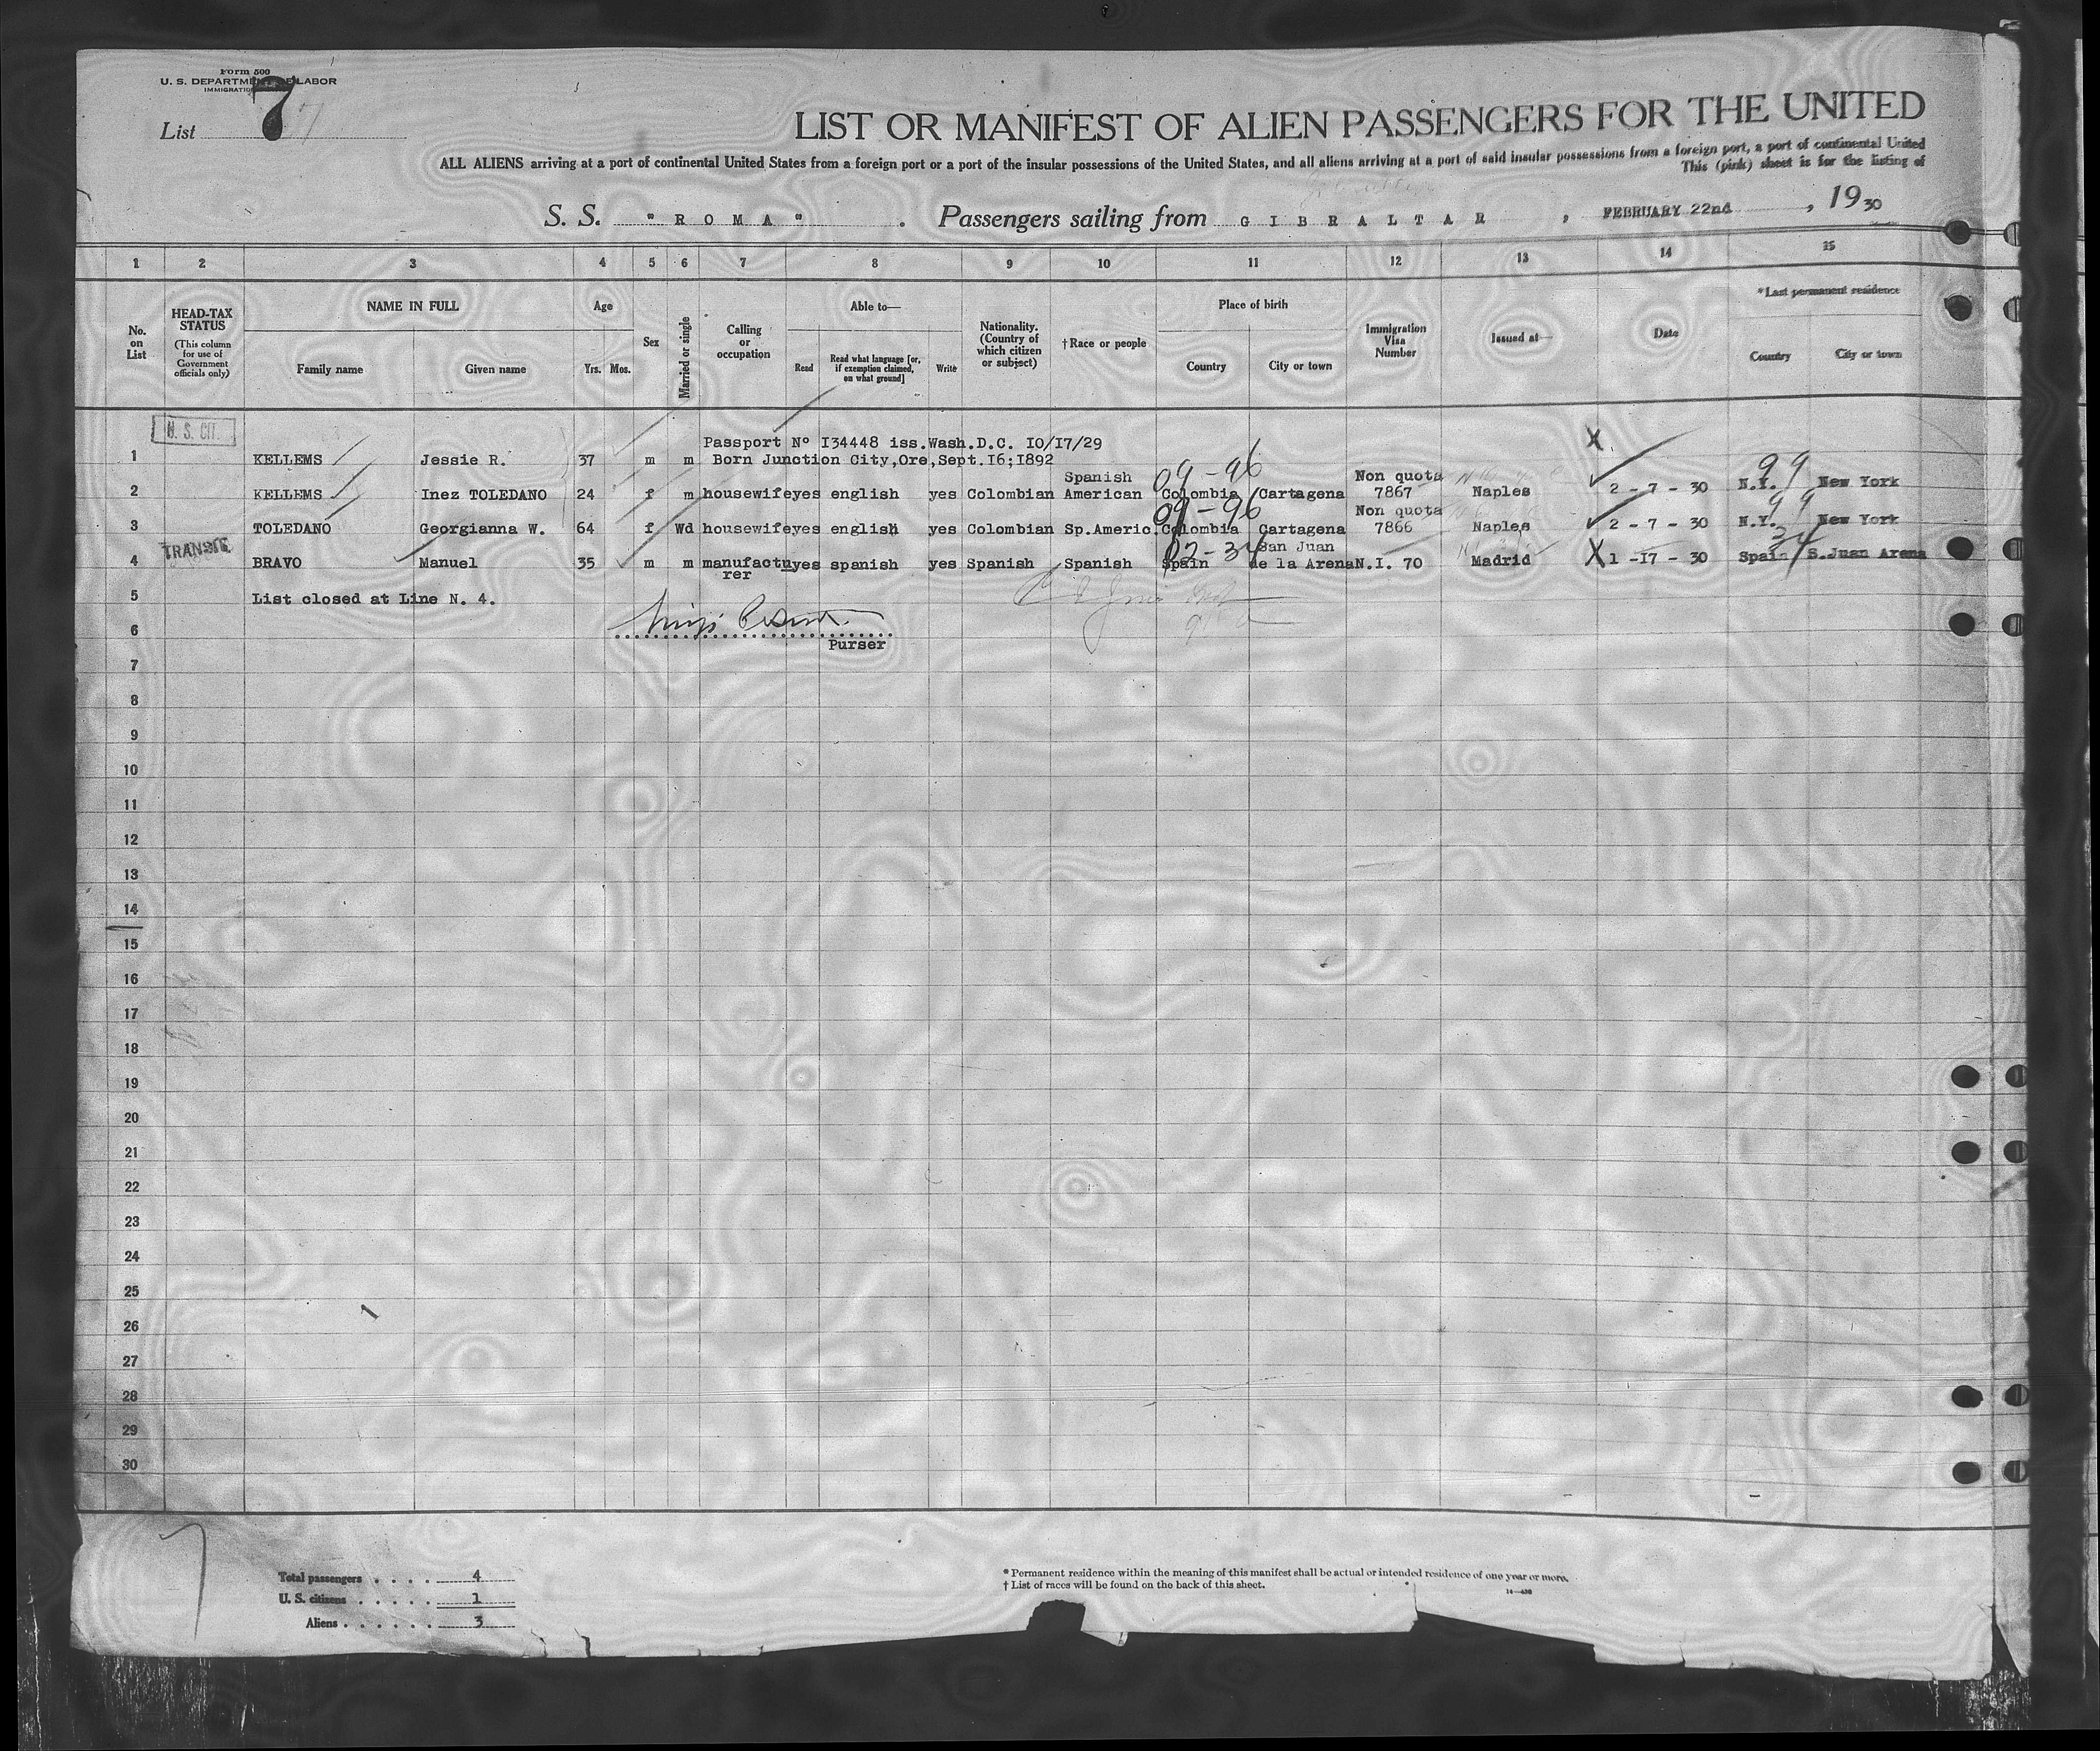 Form 500
U. S. DEPARTMENT OF LABOR
IMMIGRATION
List 7
LIST OR MANIFEST OF ALIEN PASSENGERS FOR THE UNITED
ALL ALIENS arriving at a port of continental United States from a foreign port or a port of the insular possessions of the United States, and all aliens arriving at a port of said insular possessions from a foreign port, a port of continental United
This (pink) sheet is for the listing of
S. S. "ROMA". Passengers sailing from GIBRALTAR, FEBRUARY 22nd, 1930
1 2 3 4 5 6 7 8 9 10 11 12 13 14 15
No. on List
HEAD-TAX STATUS (This column for use of Government officials only)
NAME IN FULL
Family name Given name
Age
Yrs. Mos.
Sex
Married or single
Calling or occupation
Able to—
Read
Read what language [or, if exemption claimed, on what ground]
Write
Nationality. (Country of which citizen or subject)
†Race or people
Place of birth
Country City or town
Immigration Visa Number
Issued at—
Date
*Last permanent residence
Country City or town
U. S. CIT.
Passport Nº I34448 iss.Wash.D.C. IO/I7/29 X
1 KELLEMS Jessie R. 37 m m Born Junction City,Ore,Sept.I6;I892
Spanish 09-96 Non quota 99
2 KELLEMS Inez TOLEDANO 24 f m housewife yes english yes Colombian American Colombia Cartagena 7867 Naples 2 - 7 - 30 N.Y. New York
09-96 Non quota 99
3 TOLEDANO Georgianna W. 64 f Wd housewife yes english yes Colombian Sp.Americ. Colombia Cartagena 7866 Naples 2 - 7 - 30 N.Y. New York
TRANSIT 02-34 San Juan 34
4 BRAVO Manuel 35 m m manufactu yes spanish yes Spanish Spanish Spain de la Arena N.I. 70 Madrid X 1 -17 - 30 Spain S.Juan Arena
rer
5 List closed at Line N. 4.
6
Purser
7
8
9
10
11
12
13
14
15
16
17
18
19
20
21
22
23
24
25
26
27
28
29
30
7
Total passengers . . . . 4
U. S. citizens . . . . . 1
Aliens . . . . . . 3
* Permanent residence within the meaning of this manifest shall be actual or intended residence of one year or more.
† List of races will be found on the back of this sheet.